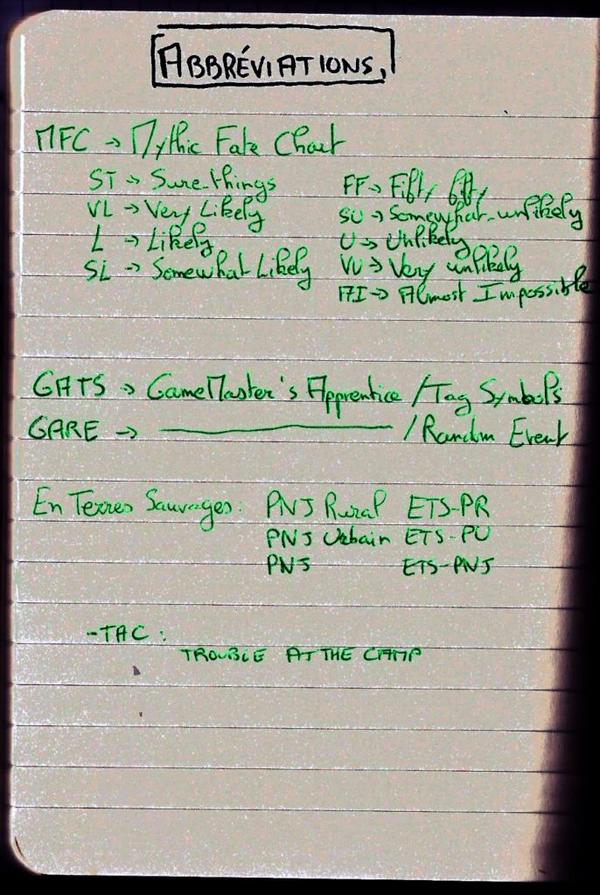 ABBRÉVIATIONS,
MFC → Mythic Fate Chart
ST → Sure-things
FF → Fifty fifty
VL → Very Likely
SU → Somewhat-unlikely
L → Likely
U → Unlikely
SL → Somewhat Likely
VU → Very unlikely
AI → Almost Impossible
GATS → GameMaster's Apprentice / Tag Symbols
GARE → ———— / Random Event
En Terres Sauvages: PNJ Rural ETS-PR
PNJ Urbain ETS-PU
PNJ ETS-PNJ
-TAC :
TROUBLE AT THE CAMP